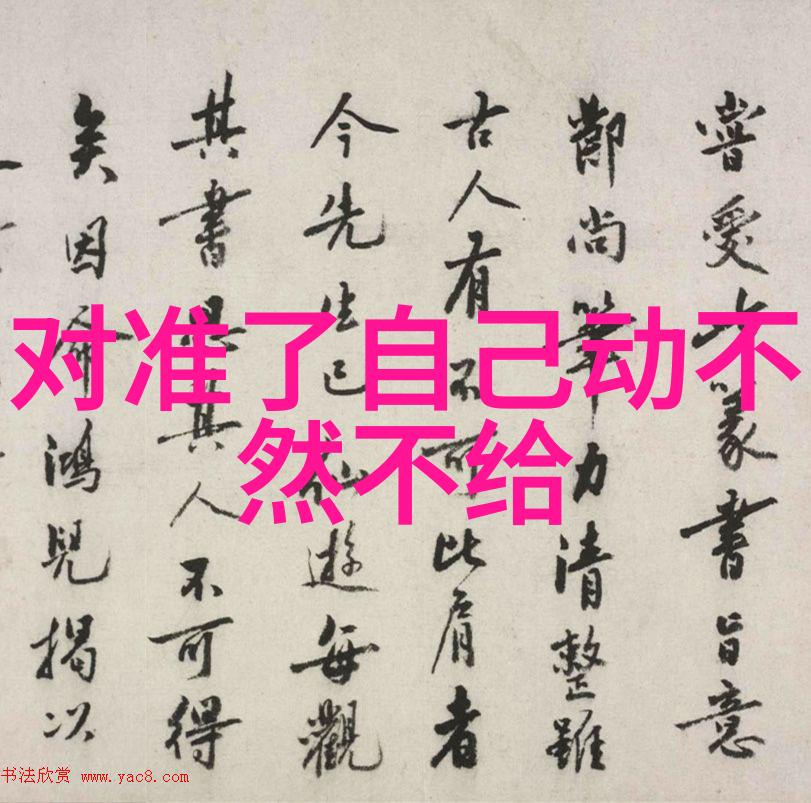 对准了自己动不
然不给
嘗受篆書旨意
尚筆力清整雖
古人有不可比肩者
今先生已仙遊每觀
其書其人不可得
矣因鴻兒揭以
书法欣赏 www.yac8.com